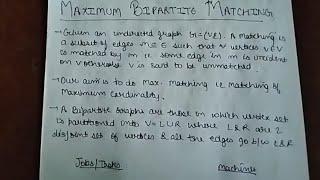 MAXIMUM BIPARTITE MATCHING
→ Given an undirected graph G=(V,E). A matching is
a subset of edges M ⊆ E such that ∀ vertices v ∈ V
is matched by m ie some edge in m is incident
on v otherwise v is said to be unmatched.
→ Our aim is to do Max. matching i.e matching of
Maximum cardinality.
→ A Bipartite Graphs are those in which vertex set
is partitioned into V = L ∪ R where L & R are 2
disjoint set of vertices & all the edges go b/w L & R
Jobs/Tasks Machines